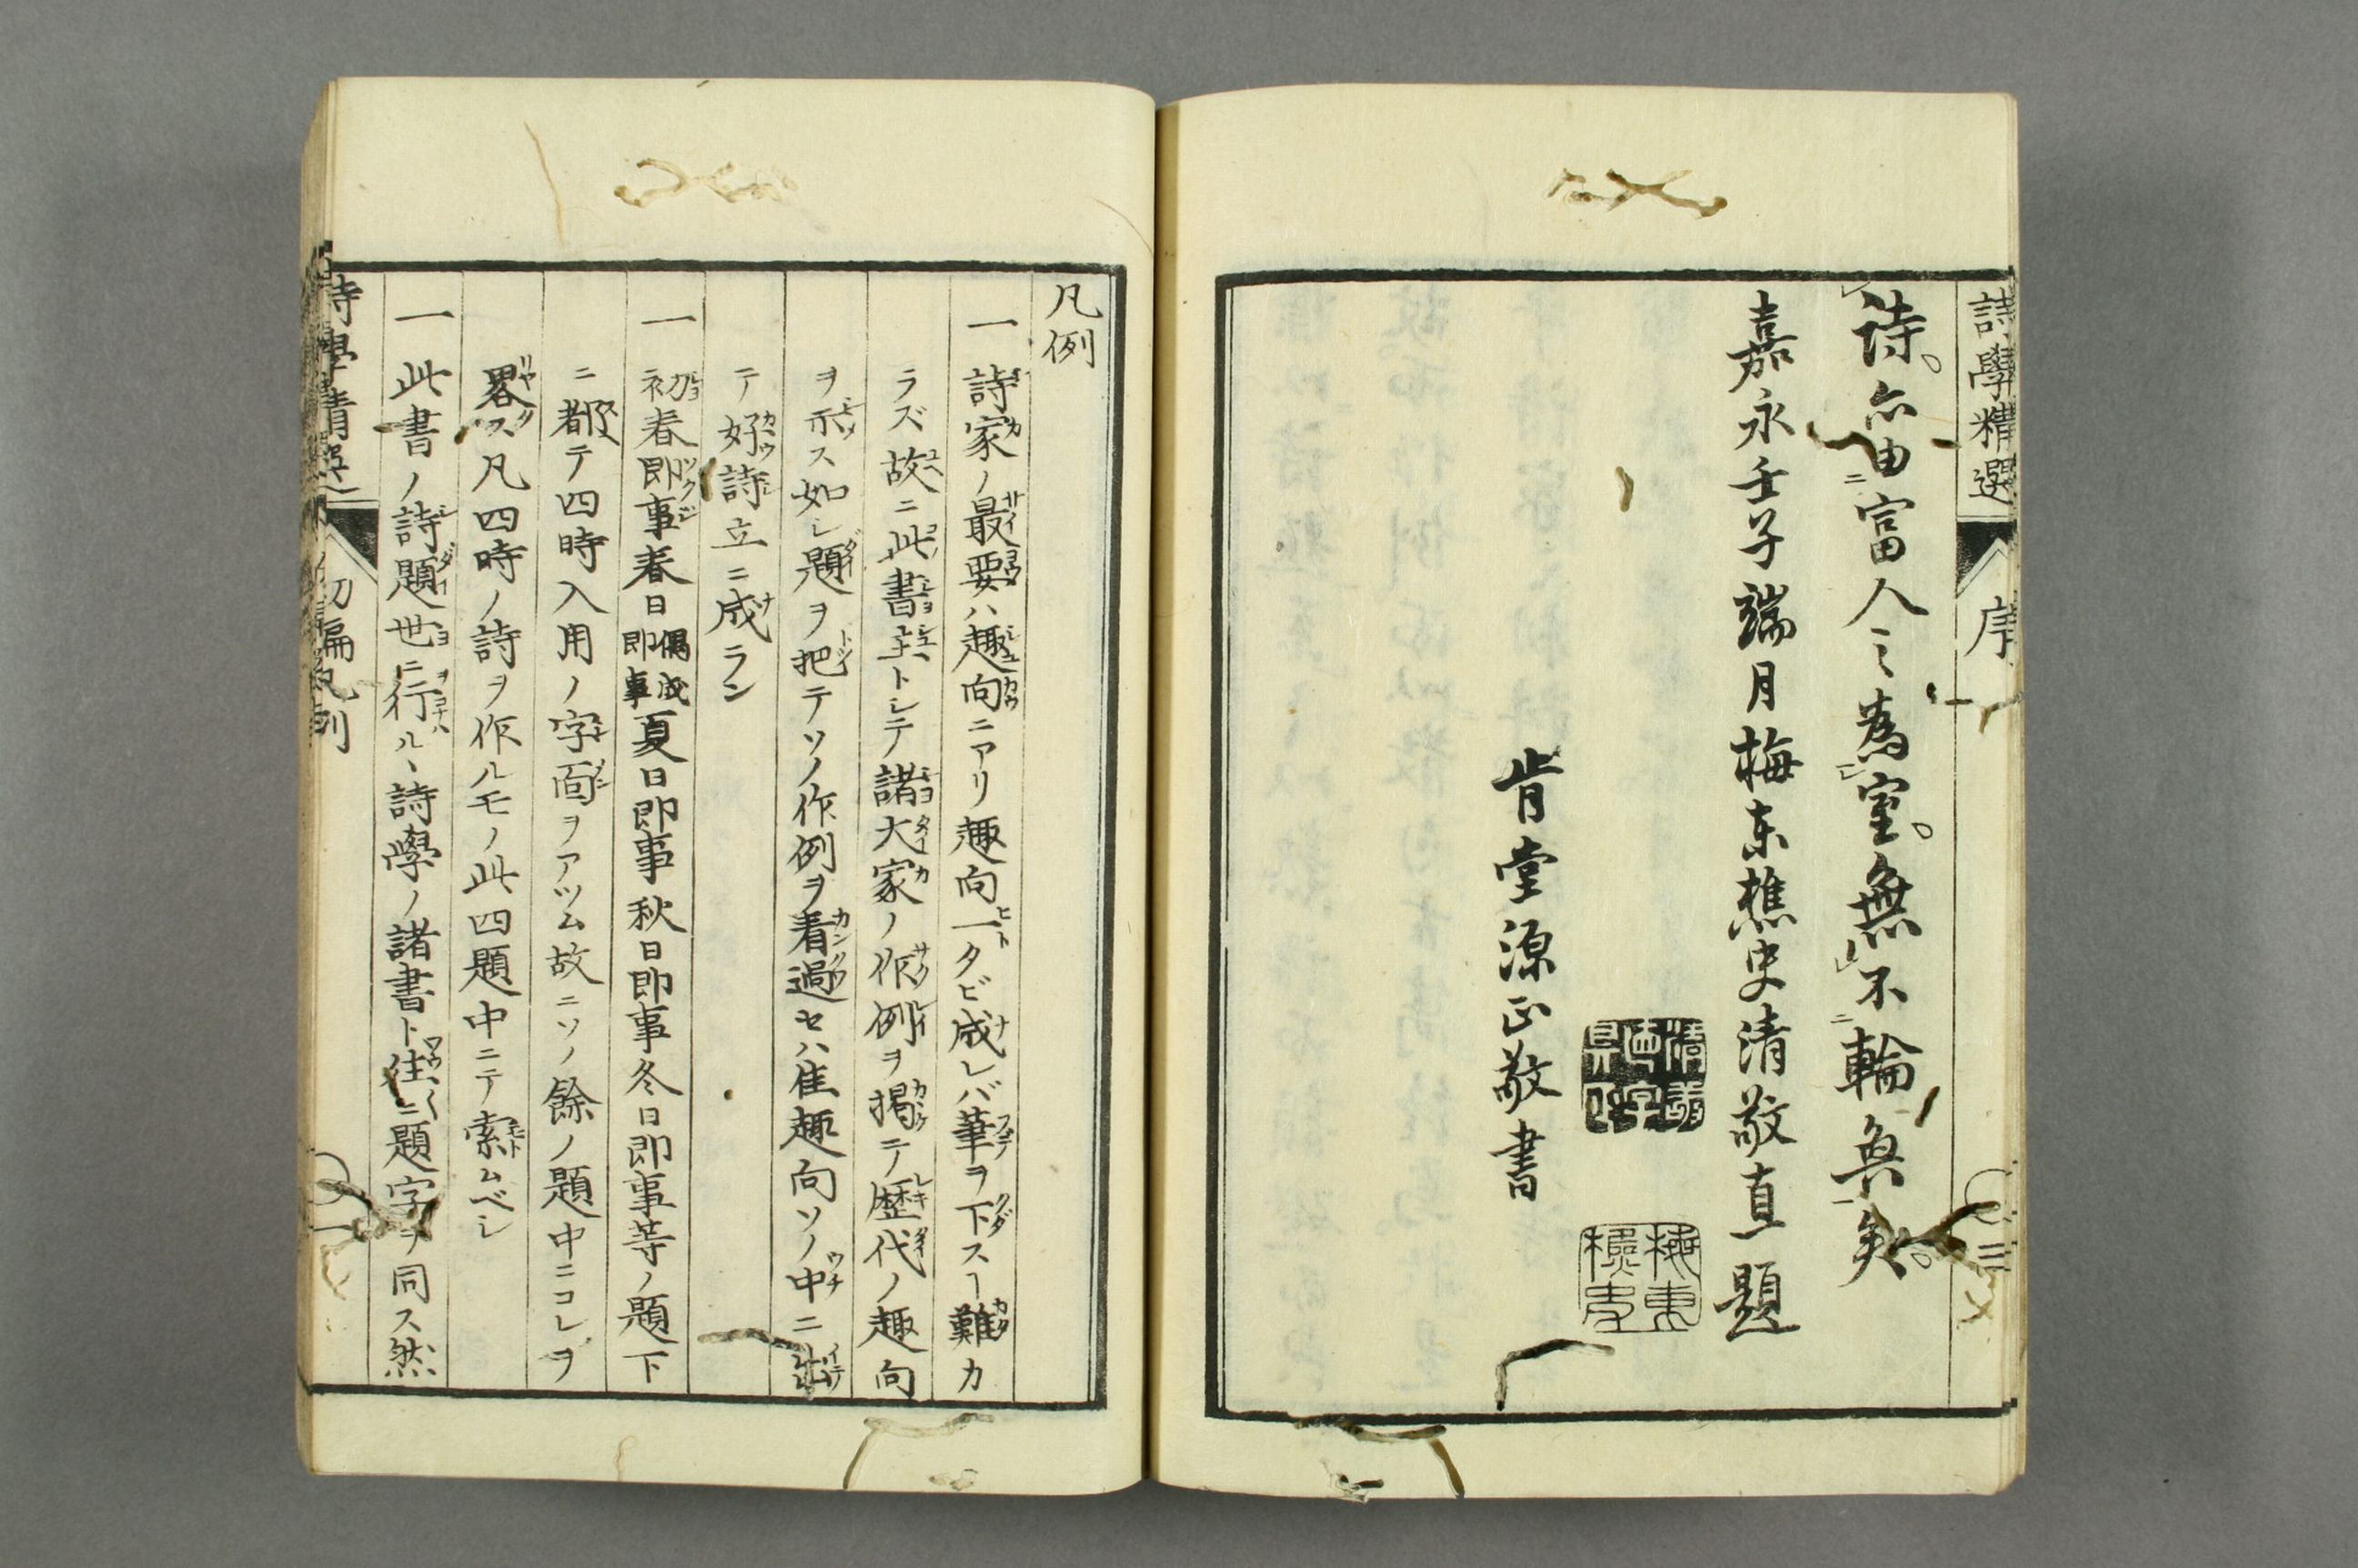 詩學精選
序
三
詩。亦由富人之為室。無不輪奐矣。
嘉永壬子端月梅東樵史清敬直題
肯堂源正敬書
凡例
一詩家ノ最要ハ趣向ニアリ趣向一タビ成レバ筆ヲ下スヿ難カ
ラズ故ニ此書主トシテ諸大家ノ作例ヲ掲テ歴代ノ趣向
ヲ示ス如シ題ヲ把テソノ作例ヲ着過セハ佳趣向ソノ中ニ出
テ好詩立ニ成ラン
一初春即事春日偶成即事夏日即事秋日即事冬日即事等ノ題下
ニ都テ四時入用ノ字面ヲアツム故ニソノ餘ノ題中ニコレヲ
畧ス凡四時ノ詩ヲ作ルモノ此四題中ニテ索ムベシ
一此書ノ詩題世ニ行ルヽ詩學ノ諸書ト往〻ニ題字ヲ同ス然
詩學精選
初編凡例